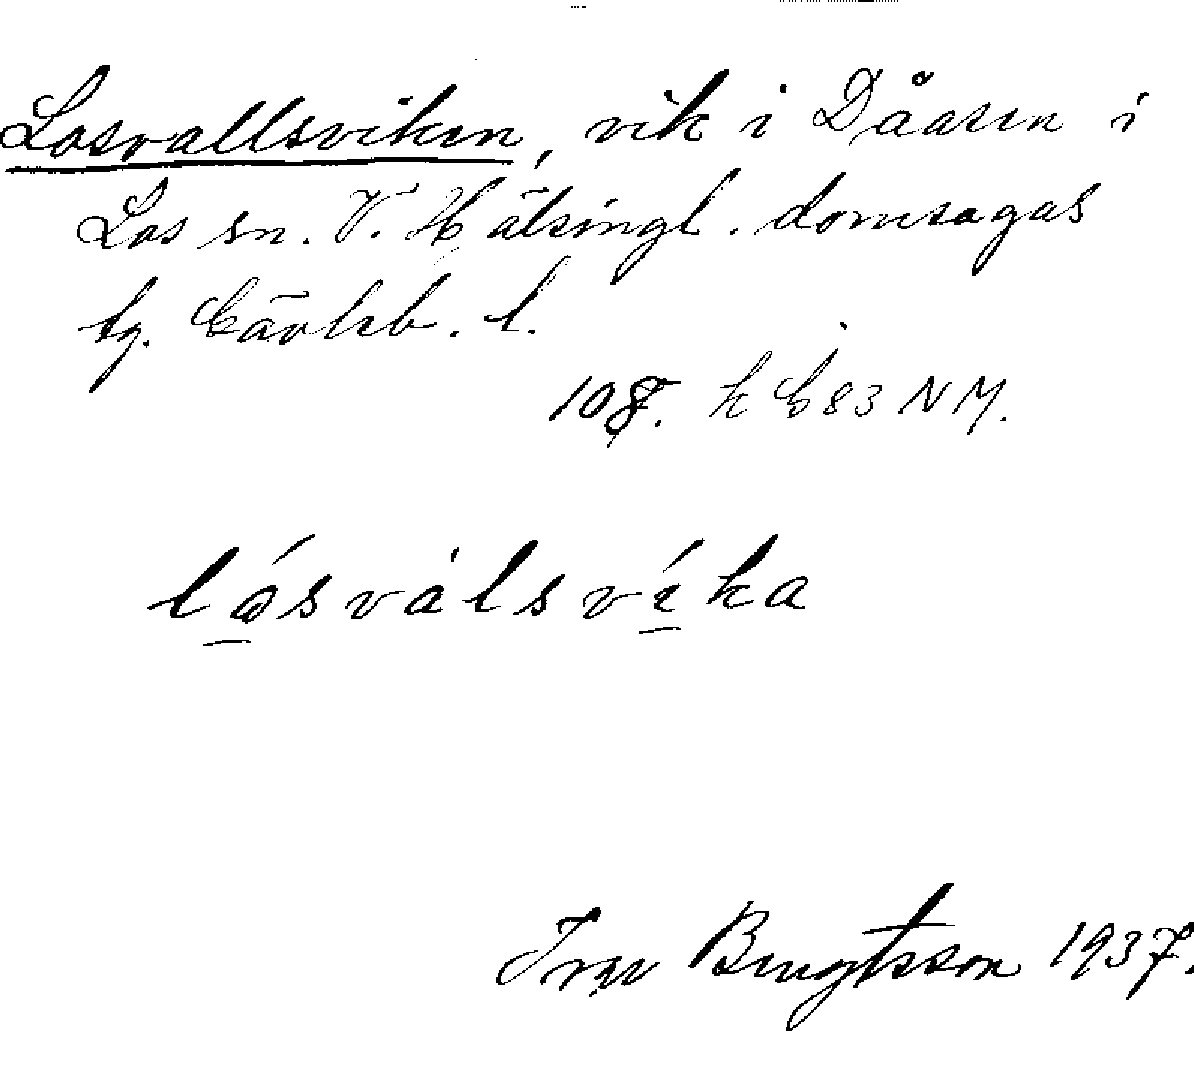 Losvallsviken, vik i Dåasen i
Los sn. V. Hälsingl. domsagas
tg. Gävleb. l.
108. k G 83 NM.
lósvàlsvíka
Bengtsson 1937.